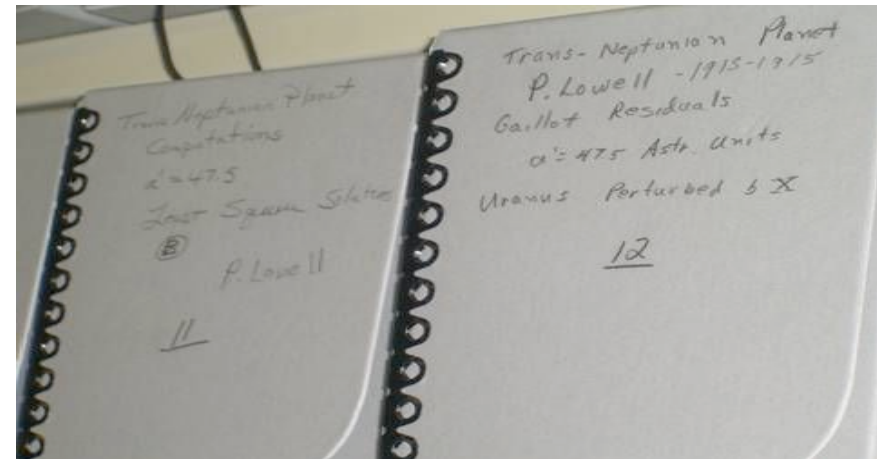 Trans-Neptunian Planet
Computations
a' = 47.5
Least Square Solution
B
P. Lowell
11
Trans-Neptunian Planet
P. Lowell - 1915-1915
Gaillot Residuals
a' = 47.5 Astr. Units
Uranus Perturbed b X
12